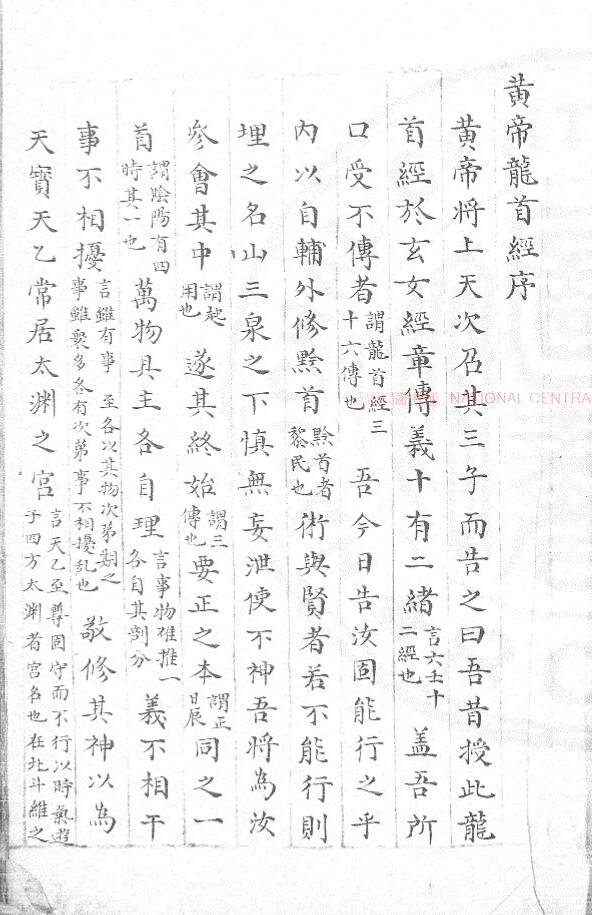 黄帝龍首經序
黄帝將上天次召其三子而告之曰吾昔授此龍
首經於玄女經章傳義十有二緒言六壬十二經也盖吾所
口受不傳者謂龍首經三十六傳也吾今日告汝固能行之乎
内以自輔外修黔首黔首者黎民也術與賢者若不能行則
埋之名山三泉之下慎無妄泄使不神吾將為汝
參會其中謂起用也遂其終始謂三傳也要正之本謂正日辰同之一
首謂陰陽有四時其一也萬物具主各自理言事物雖推一各自其剖分義不相干
事不相擾言雖有事至各以其物次第期之事雖衆多各有次第事不相擾乱也敬修其神以為
天寳天乙常居太淵之宫言天乙至尊固守而不行以時氣遊于四方太淵者宫名也在北斗維之
NATIONAL CENTRA